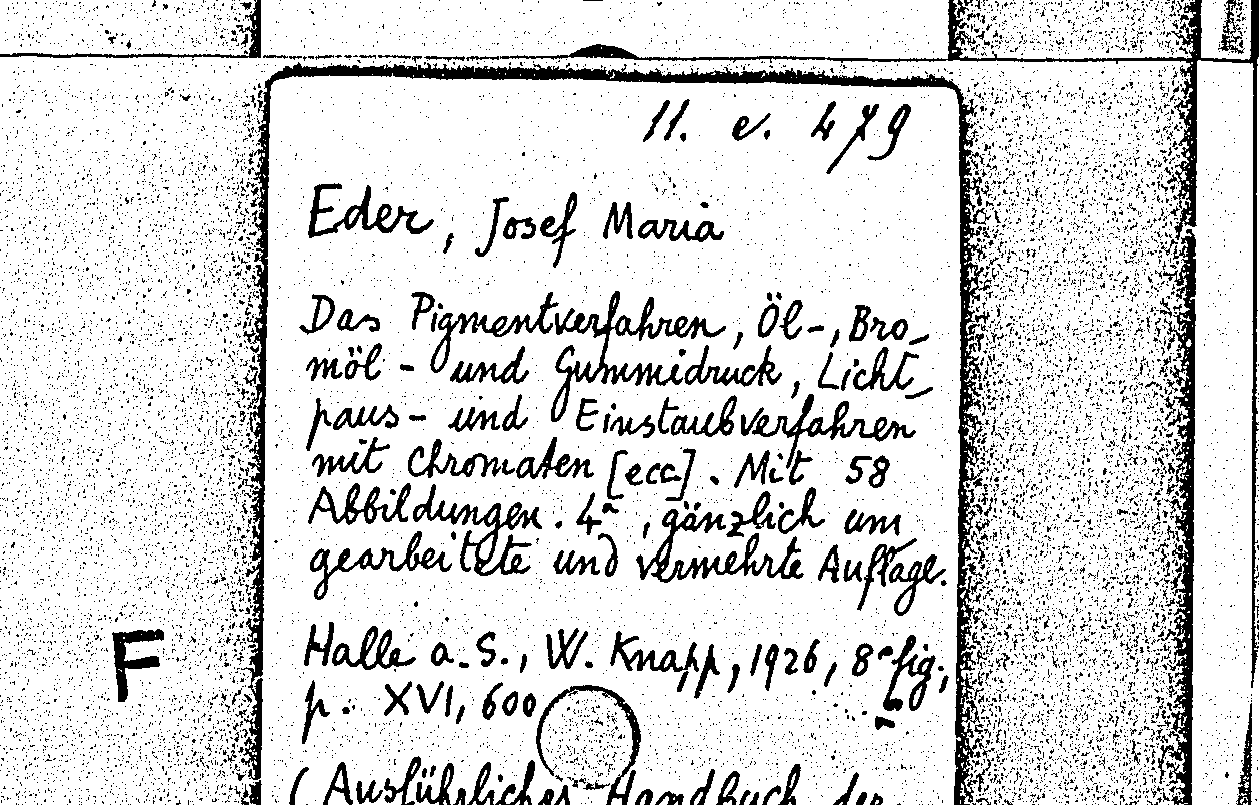 11. e. 479
Eder, Josef Maria
Das Pigmentverfahren, Öl-, Bro-
möl- und Gummidruck, Licht-
paus- und Einstaubverfahren
mit Chromaten [ecc]. Mit 58
Abbildungen. 4ª, gänzlich um-
gearbeitete und vermehrte Auflage.
Halle a.S., W. Knapp, 1926, 8° fig.,
F
p. XVI, 600
(Ausführliches Handbuch der